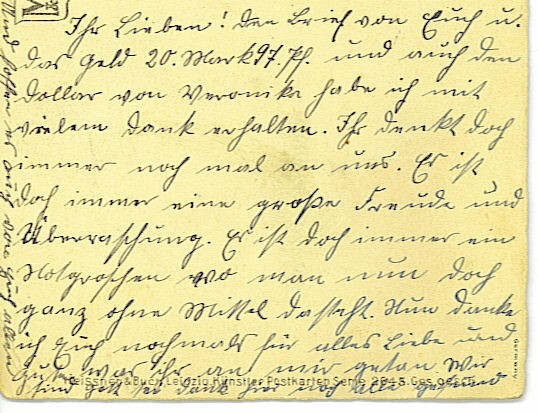 Ihr Lieben! Den Brief von Euch u.
das Geld 20. Mark 97. Pf. und auch den
Dollar von Veronika habe ich mit
vielem Dank erhalten. Ihr denkt doch
immer noch mal an uns. Es ist
doch immer eine große Freude und
Überraschung. Es ist doch immer ein
Notgroschen wo man nun doch
ganz ohne Mittel dasteht. Nun danke
ich Euch nochmals für alles Liebe und
Gutes was ihr an mir getan. Wir
sind Gott sei Dank hier noch alle gesund
Meissner & Buch, Leipzig Künstler Postkarten Serie Ges. gesch.
Germany
Und hoffen es auch von Euch allen